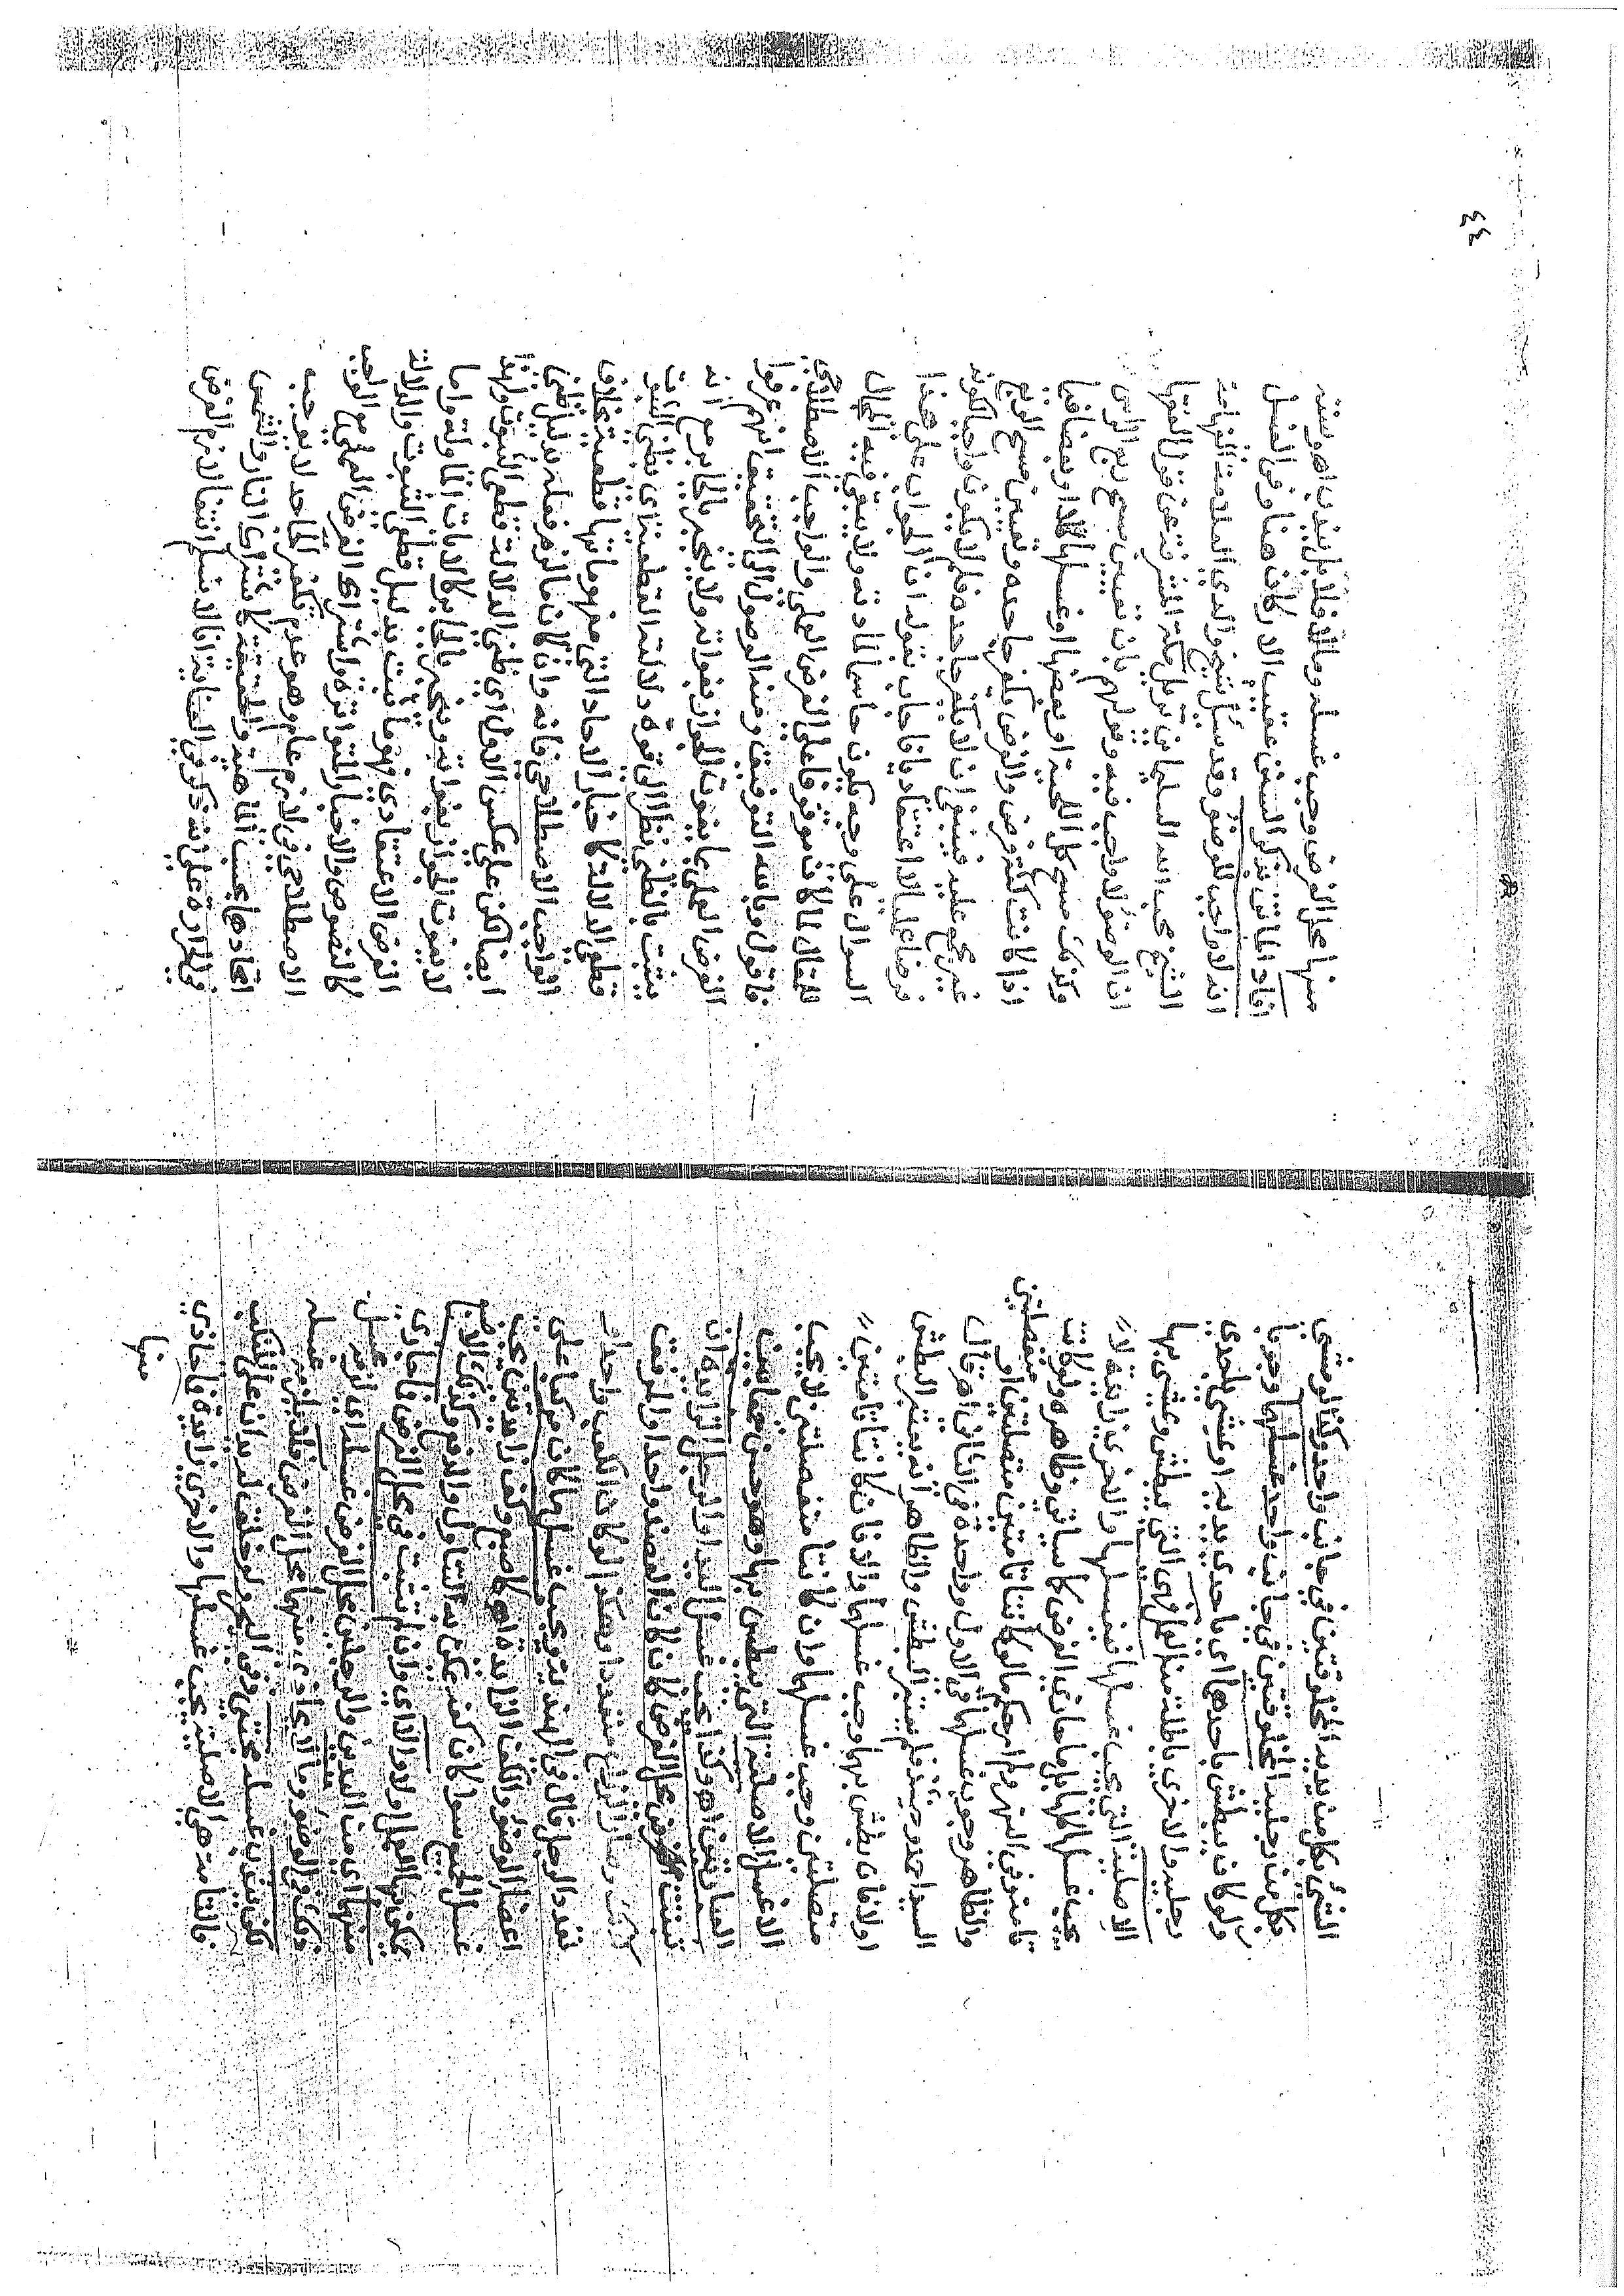 الشئ بكل من يديه المخلوقتين في جانب واحد وكذا لو مشى
بكل من رجليه المخلوقتين في جانب واحد غسلهما وجوبا
ولو كان يبطش باحدهما اي باحدى يديه او يمشى باحدى
رجليه والاخرى باطلة منه العمل فهي التي يبطش ويمشى بها
الاصلية التي يجب غسلها فيغسلها والاخرى زايدة لا
يجب غسلها كلها بل ما حاذى الفرض كما سياتي وظاهره ولو كانت
تامة وفي النهر ولم ار حكم ما لو كانتا تامتين متصلتين او منفصلتين
والظاهر وجوب غسلهما في الاول وواحدة في الثاني اهـ قال
السيد احمد وحينئذ فلم يعتبر البطش والظاهر انه يعتبر البطش
اولا فان بطش بهما وجب غسلهما والا فان كانتا تامتين
متصلتين وجب غسلهما وان كانتا منفصلتين لا يجب
الا غسل الاصلية التي يبطش بها وهو حسن جمعا بين
العبارتين اهـ وكذا يجب غسل اليد والرجل الزايدة ان
نبتت من محل الفرض كان كان العضد واحدا والمرفق
كذلك وصار الذراع متعددا وهكذا لو كان الكعب واحدا و
تعدد الرجل قال في الهندية ويجب غسل ما كان مركبا على
اعضاء الوضوء والكف الزايدة اهـ كاصبع وكف زايدتين يجب
غسل الجميع سوا كان كفه يمكن به التناول والدفع وكذلك الاصابع
يمكن بها العمل او لا ولا اي وان لم تنبت في محل الفرض فما حاذى
منهما اي من اليدين والرجلين محل الفرض غسله اي لزمه غسل
ذلك في الوضوء وما لا يحاذى منهما محل الفرض فلا يلزم غسله
لكن يندب غسله مجتبى وفي البحر ولو خلق له يدان على المنكب
فالتامة هي الاصلية يجب غسلها والاخرى زايدة فما حاذى
منها
٤٤
منها محل الفرض وجب غسله وما لا فلا بل يندب اهـ وسنة
افاد الماتن بذكر السنن عقيب الاركان هنا وفي الغسل
انه لا واجب للوضوء وقد سئل شيخ والدي العلامة الفهامة
الشيخ عبد الله السليماني نزيل مكة المشرفة عن قول الفقها
ان الوضوء لا واجب فيه وقولهم بان تعيين مسح ربع الراس
وكذلك مسح كل اللحية او بعضها او غسلها كلا او بعضا فيما
اذا كانت كثة فرض والفرض يكفر جاحده وتعيين مسح الربع
غير مجمع عليه فينبغي ان لا يكفر جاحده فلم لا يكون واجبا لكونه
فرضا عمليا لا اعتقاديا فاجاب بقوله ان الجواب على هذا
السوال على وجه يكون حاسما لمادته ولا يبقى فيه لمجال
المقال لما كان موقوفا على الفرض العملي والواجب الاصطلاحي
فاقول وبالله التوفيق ومنه الوصول الى التحقيق انهم عرفوا
الفرض العملي بما يفوت الجواز بفواته ولا ينجبر بالجابر مع انه
يثبت بالظني نظرا الى قوة دلالته القطعية اي بظني الثبوت
قطعي الدلالة كاخبار الاحاد التي مفهوماتها قطعية بخلاف
الواجب الاصطلاحي فانه وان كان مما لزم فعله بدليل ظني
ايضا لكن على عكس الاول اي ظني الدلالة قطعي الثبوت ولهذا
لا يفوت الجواز بفواته وينجبر بالجابر كالايات المأولة واما
الفرض الاعتقادي فهو ما يثبت بدليل قطعي الثبوت والدلالة
كالنصوص والاخبار المتواترة واشتراك الفرض العملي مع الواجب
الاصطلاحي في لازم عام وهو عدم تكفير الجاحد لا يوجب
اتحادهما بحسب الماهية والحقيقة كاشتراك النار والشمس
في الحرارة على انه ذكر في العناية انا لا نسلم انتفاء لازم الفرض